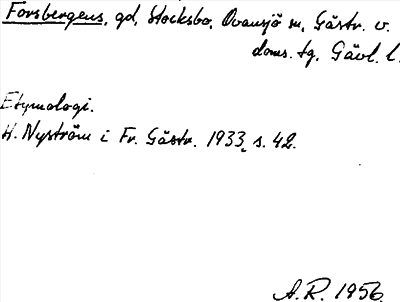 Forsbergens, gd, Stocksbo, Ovansjö sn, Gästr. v.
doms. tg, Gävl. l.
Etymologi.
H. Nyström i Fr. Gästr. 1933, s. 42.
A.R. 1956.